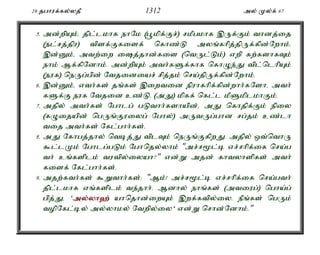 29 தபாரக்கல்லதீ 1312 அல் முல்க் 67
5. அன்றியும், திட்டமாக நாமே (பூமிக்குச்) சமீபமாக இருக்கும் வானத்தை
(நட்சத்திர) விளக்குகளைக் கொண்டு அலங்கரித்திருக்கின்றோம்.
இன்னும், அவற்றை ஷைத்தான்களை (வெருட்டும்) எறி கற்களாகவும்
நாம் ஆக்கினோம். அன்றியும் அவர்களுக்காக கொழுந்து விட்டெரியும்
(நரக) நெருப்பின் வேதனையைச் சித்தம் செய்திருக்கின்றோம்.
6. இன்னும், எவர்கள் தங்கள் இறைவனை நிராகரிக்கின்றார்களோ, அவர்
களுக்கு நரக வேதனை உண்டு. (அது) மிகக் கெட்ட மீளுமிடமாகும்.
7. அதில் அவர்கள் போடப் படுவார்களாயின், அது கொதிக்கும் நிலை
(கழுதையின் பெருங்குரலைப் போல்) அருவருப்பான சப்தம் உண்டா
வதை அவர்கள் கேட்பார்கள்.
8. அது கோபத்தால் வெடித்து விடவும் நெருங்குகிறது. அதில் ஒவ்வொரு
கூட்டமும் போடப்படும் போதெல்லாம் "அச்சமூட்டி எச்சரிக்கை செய்ப
வர் உங்களிடம் வரவில்லையா?" என்று அதன் காவலாளிகள் அவர்
களைக் கேட்பார்கள்.
9. அதற்கவர்கள் கூறுவார்கள்: "ஆம்! அச்சமூட்டி எச்சரிக்கை செய்பவர்
திட்டமாக எங்களிடம் வந்தார். ஆனால் நாங்கள் (அவரைப்) பொய்ப்
பித்து, 'அல்லாஹ் யாதொன்றையும் இறக்கவில்லை. நீங்கள் பெரும்
வழிகேட்டில் அல்லாமல் வேறில்லை' என்று சொன்னோம்."